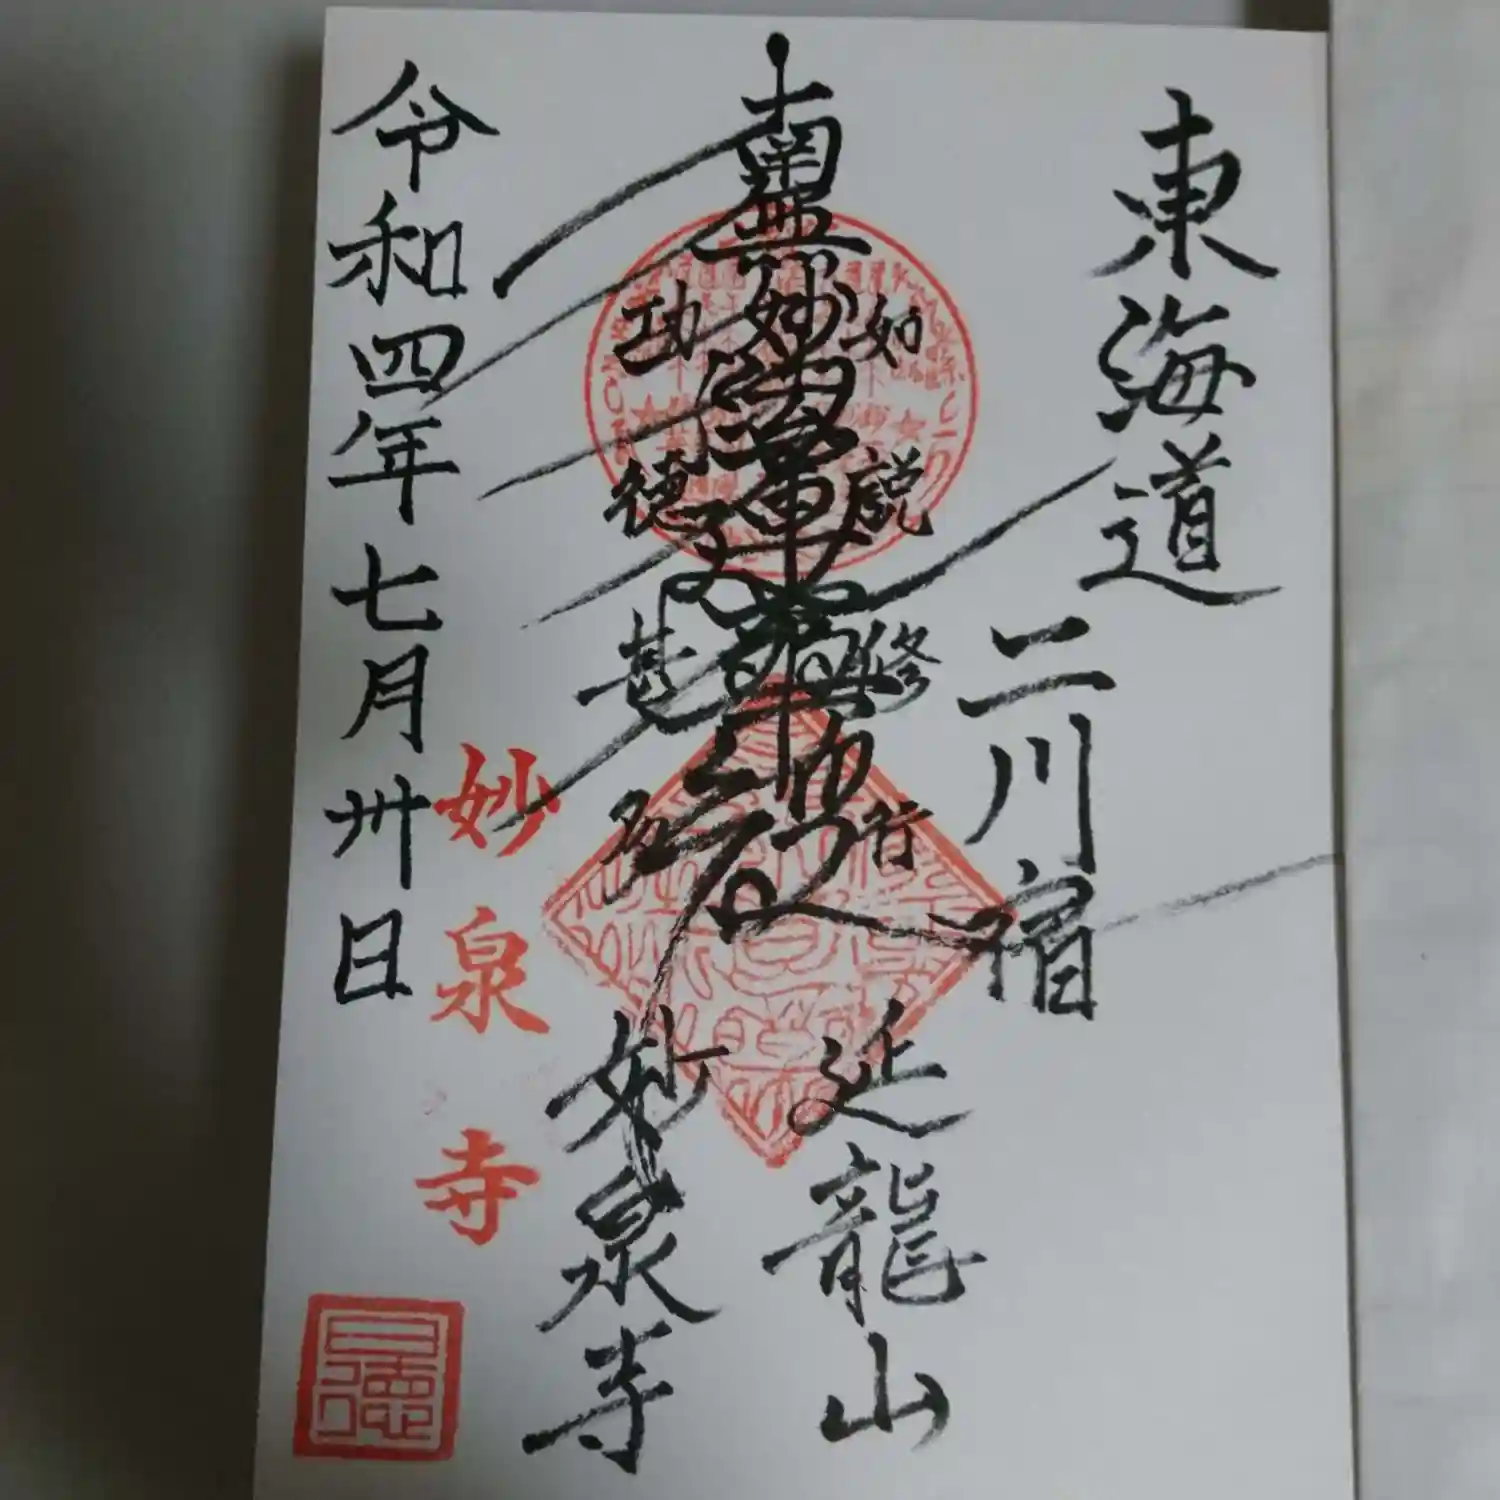 東海道
二川宿
如説修行
南無妙法蓮華経
功徳甚多
延龍山
妙泉寺
妙泉寺
令和四年七月卅日
日徳